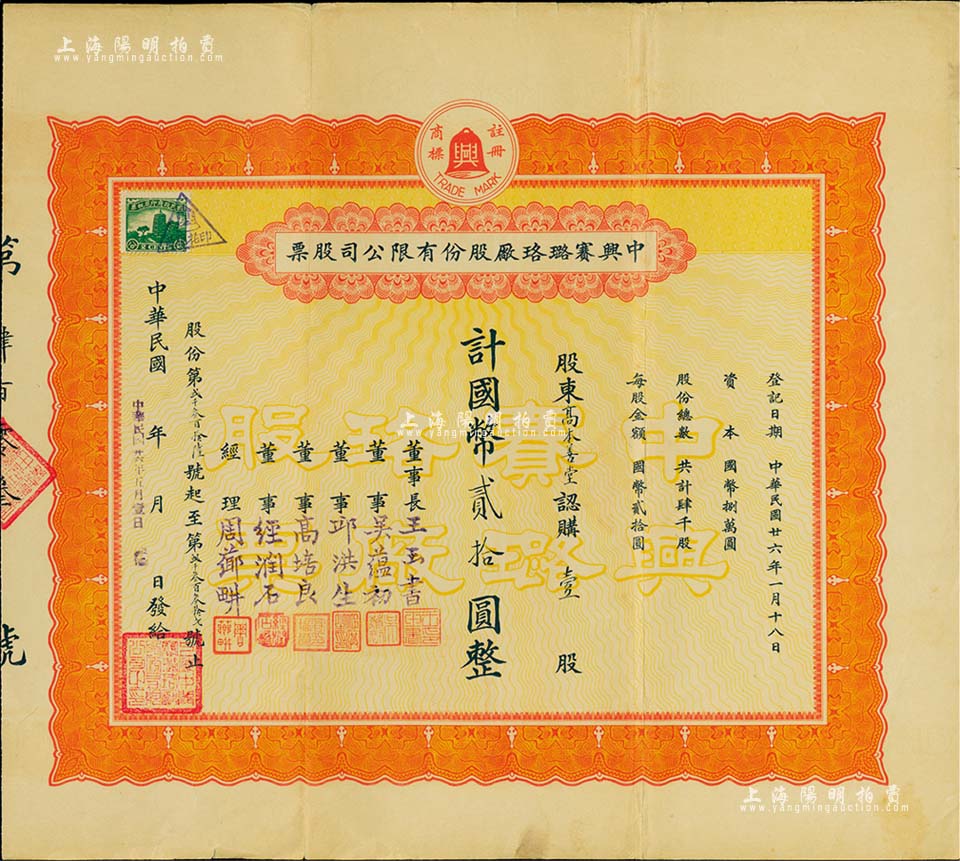 上海陽明拍賣
www.yangmingauction.com
註冊
商標
興
TRADE MARK
中興賽璐珞廠股份有限公司股票
登記日期 中華民國廿六年一月十八日
資本 國幣捌萬圓
股份總數 共計肆千股
每股金額 國幣貳拾圓
股東高 善堂認購壹股
計國幣貳拾圓整
董事長 王玉書
董事 吳蘊初
董事 邱洪生
董事 高培良
董事 經潤石
經理 周薌畊
股份第 號起至第 號止
中華民國 年 月 日發給
中華民國廿六年五月壹日
第肆百 叁號
中賽珞股
興璐廠票
上海陽明拍賣
www.yangmingauction.com
上海陽明拍賣
www.yangmingauction.com